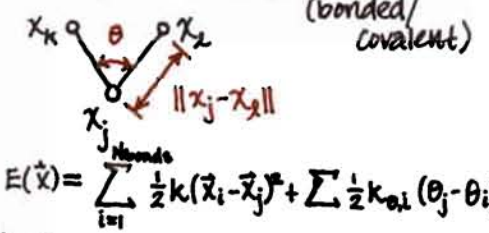 (bonded/
covalent)
x_k θ x_l
||x_j-x_l||
x_j
N_bonds
E(ẋ)= ∑ ½k(x⃗_i-x⃗_j)²+ ∑ ½k_θ,i (θ_j-θ_i
i=1